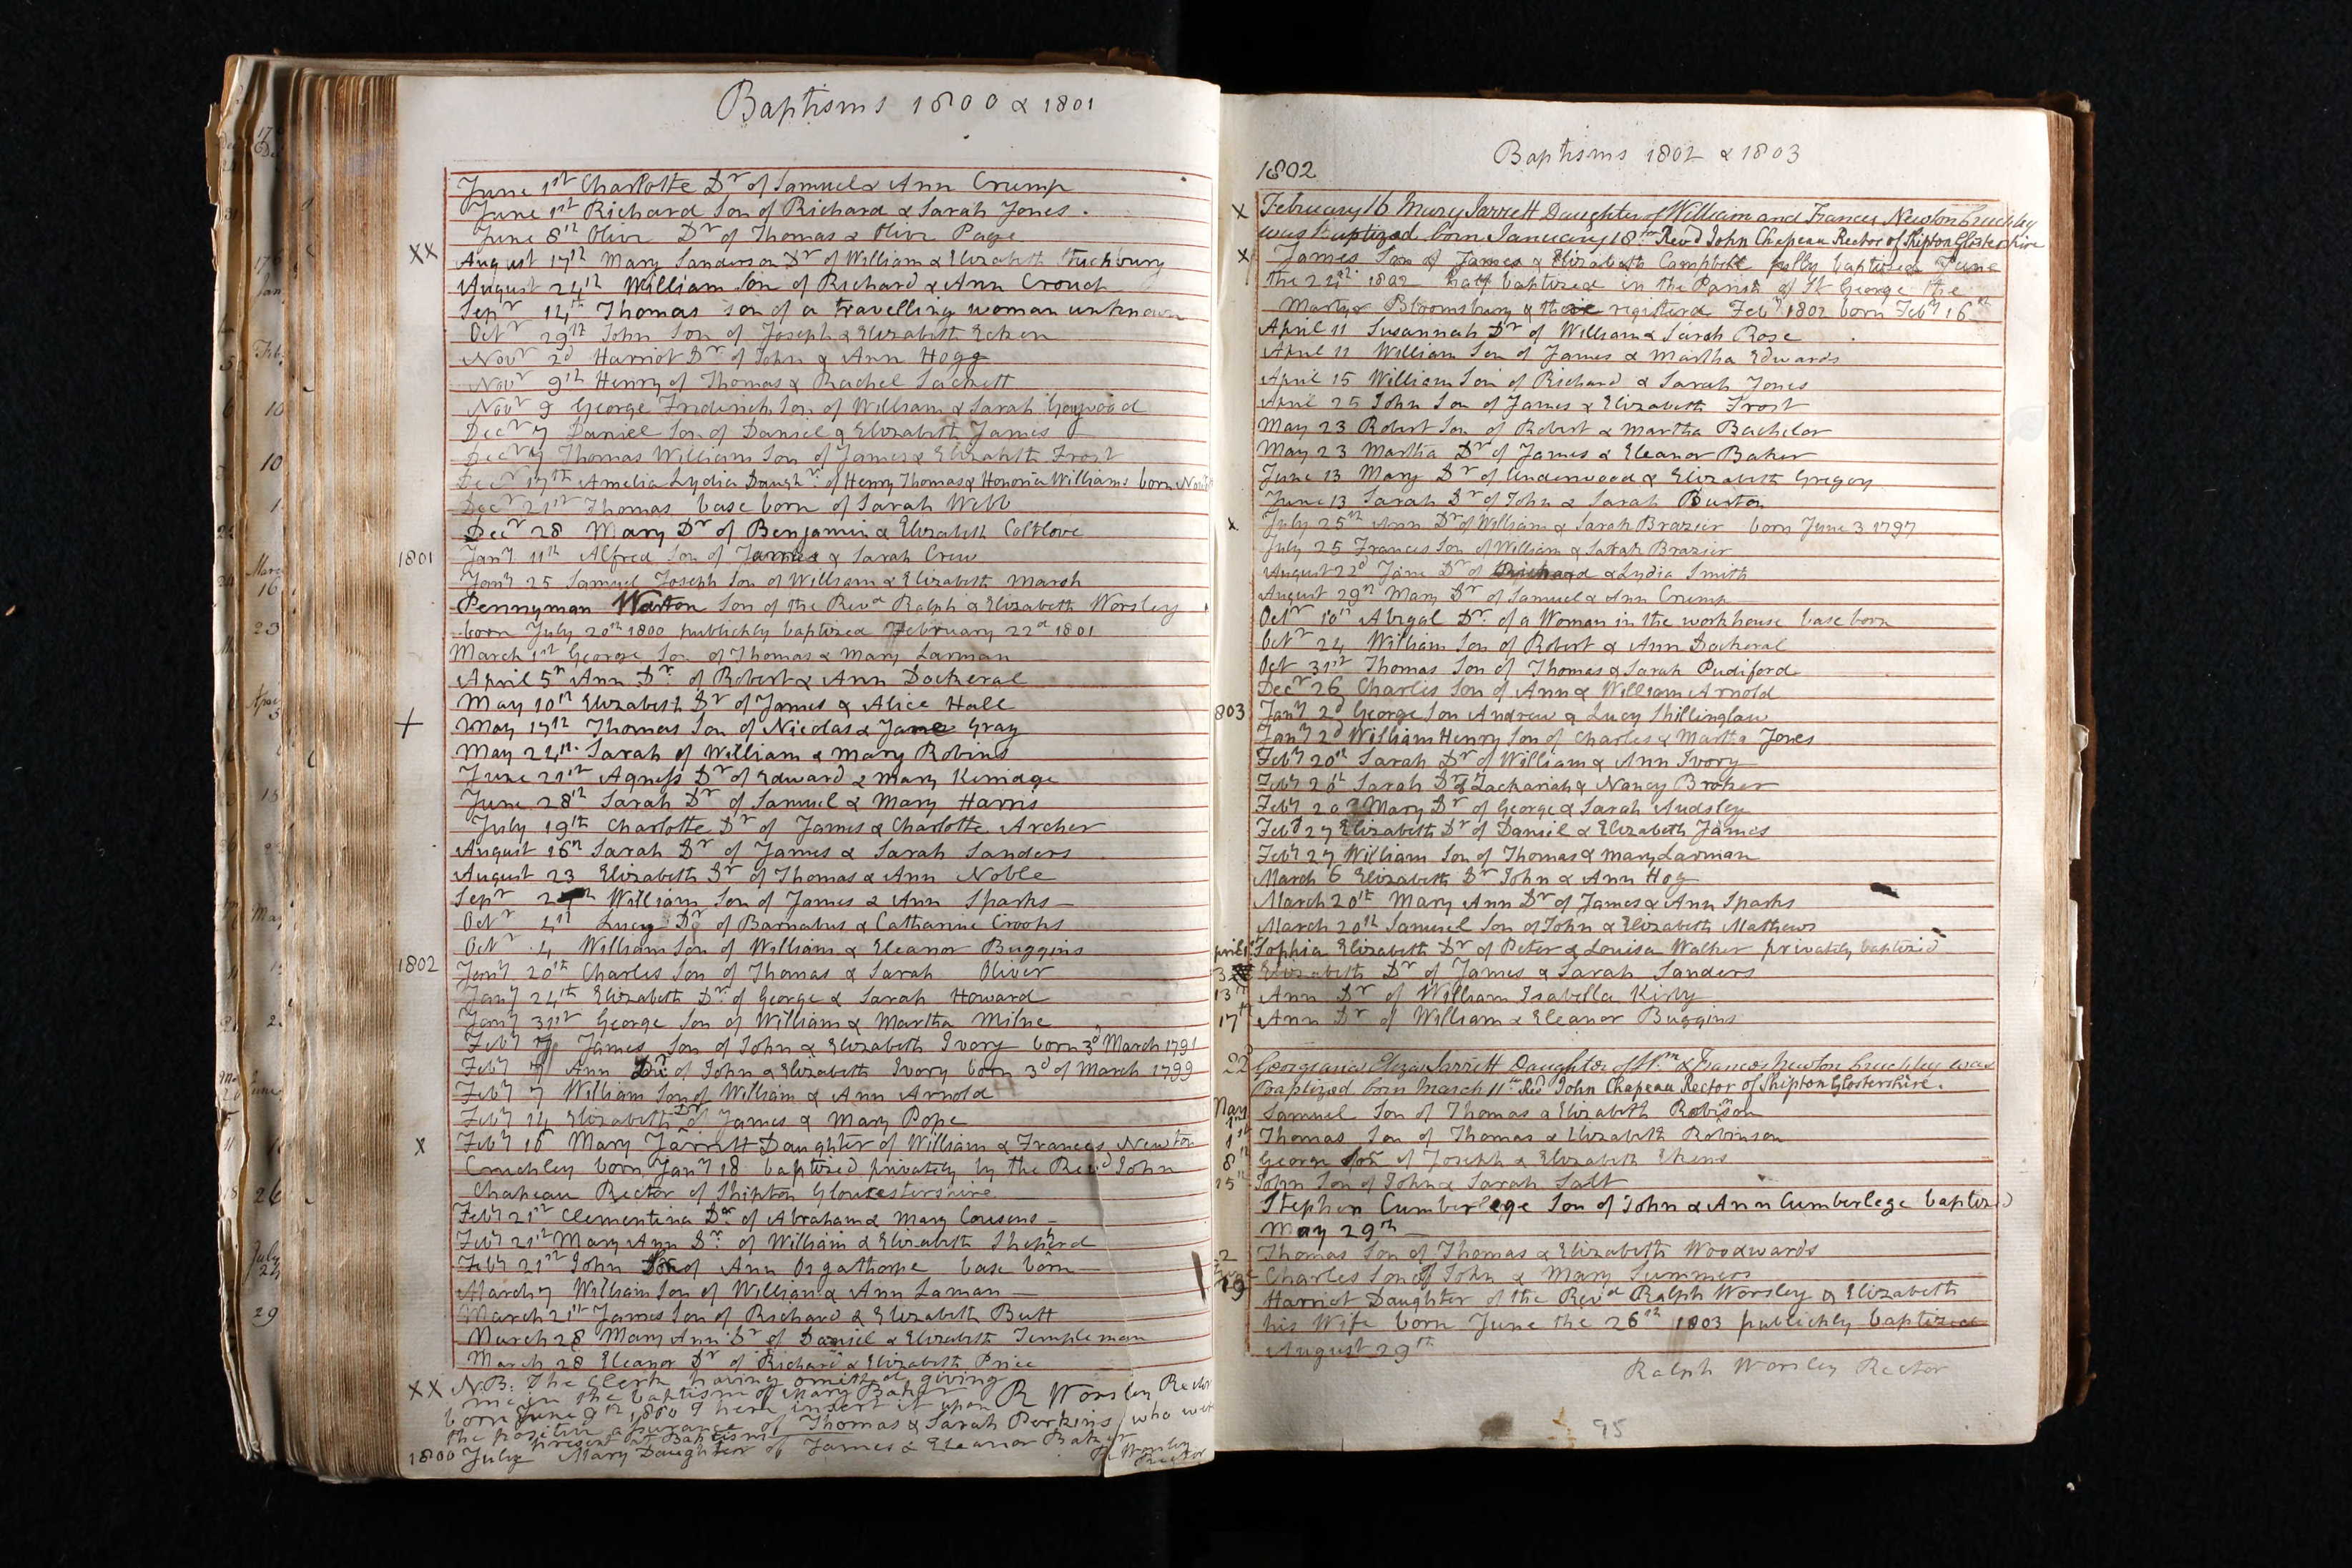 Baptisms 1800 & 1801
June 1st Charlotte Dr of Samuel & Ann Crump
June 1st Richard Son of Richard & Sarah Jones.
June 8th Olive Dr of Thomas & Olive Page
XX August 17th Mary Sanderson Dr of William & Elizabeth Tuchbury
August 24th William Son of Richard & Ann Crouch
Sepr 14th Thomas Son of a travelling woman unknown
Octr 29th John Son of Joseph & Elizabeth
Novr 2d Harriot Dr of John & Ann Hogg
Novr 9th Henry of Thomas & Rachel Sackett
Novr 9 George Frederick Son of William & Sarah
Decr 7 Daniel Son of Daniel & Elizabeth James
Decr 7 Thomas William Son of James & Elizabeth Frost
Decr 17th Amelia Lydia Daughr of Henry Thomas & Honoria Williams born
Decr 21st Thomas base born of Sarah Webb
Decr 28 Mary Dr of Benjamin & Elizabeth Coltlove
1801 Jany 11th Alfred Son of James & Sarah Crew
Jany 25 Samuel Joseph Son of William & Elizabeth March
Pennyman Warton Son of the Revd Ralph & Elizabeth Worsley
born July 20th 1800 publickly baptized February 22d 1801
March 1st George Son of Thomas & Mary Larman
April 5th Ann Dr of Robert & Ann Dockeral
May 10th Elizabeth Dr of James & Alice Hall
+ May 17th Thomas Son of Nicolas & Jane Gray
May 24th Sarah of William & Mary Robins
June 21st Agness Dr of Edward & Mary Kerridge
June 28th Sarah Dr of Samuel & Mary Harris
July 19th Charlotte Dr of James & Charlotte Archer
August 16th Sarah Dr of James & Sarah Sanders
August 23 Elizabeth Dr of Thomas & Ann Noble
Sepr William Son of James & Ann Sparks
Octr 4th Lucy Dr of Barnabus & Catharine Crooks
Octr 4 William Son of William & Eleanor Buggins
1802 Jany 20th Charles Son of Thomas & Sarah Oliver
Jany 24th Elizabeth Dr of George & Sarah Howard
Jany 31st George Son of William & Martha Milne
Feby 7 James Son of John & Elizabeth Ivory born 3d March 1791
Feby 7 Ann Dr of John & Elizabeth Ivory born 3d of March 1799
Feby 7 William Son of William & Ann Arnold
Feby 14 Elizabeth Dr of James & Mary Pope
X Feby 16 Mary Jarrett Daughter of William & Frances Newton
Cruchley born Jany 18 baptized privately by the Revd John
Chapeau Rector of Shipton Gloucestershire
Feby 21st Clementina Dr of Abraham & Mary Cousens
Feby 21st Mary Ann Dr of William & Elizabeth Sheperd
Feby 21st John Son of Ann Orgathorpe base born
March 7 William Son of William & Ann Laman
March 21st James Son of Richard & Elizabeth Butt
March 28 Mary Ann Dr of Daniel & Elizabeth Templeman
March 28 Eleanor Dr of Richard & Elizabeth Price
XX N.B. The Clerk having omitted giving
me in the baptism of Mary Baker R Worsley Rector
born June 9th 1800 I here insert it upon
the positive assurance of Thomas & Sarah Perkins who were
present at Baptism
1800 July Mary Daughter of James & Eleanor Baker
R Worsley
Rector
Baptisms 1802 & 1803
1802
X February 16 Mary Jarrett Daughter of William and Frances Newton Cruchley
was Baptized born January 18th Revd John Chapeau Rector of Shipton Glostershire
X James Son of James & Elizabeth Campbell fully baptized June
the 21st 1802 half baptized in the Parish of St George the
Martyr Bloomsbury & there registerd Feby 1802 born Feby 16th
April 11 Susannah Dr of William & Sarah Rose
April 11 William Son of James & Martha Edwards
April 15 William Son of Richard & Sarah Jones
April 25 John Son of James & Elizabeth Frost
May 23 Robert Son of Robert & Martha Bachelor
May 23 Martha Dr of James & Eleanor Baker
June 13 Mary Dr of Underwood & Elizabeth Gregory
June 13 Sarah Dr of John & Sarah Burton
x July 25th Ann Dr of William & Sarah Brazier born June 3 1797
July 25 Frances Son of William & Sarah Brazier
August 22d Jane Dr of Richard & Lydia Smith
August 29th Mary Dr of Samuel & Ann Crump
Octr 10th Abigal Dr of a Woman in the workhouse base born
Octr 24 William Son of Robert & Ann Dockeral
Oct 31st Thomas Son of Thomas & Sarah Pudiford
Decr 26 Charles Son of Ann & William Arnold
803 Jany 2d George Son Andrew & Lucy Shillinglaw
Jany 2d William Henry Son of Charles & Martha Jones
Feby 20th Sarah Dr of William & Ann Ivory
Feby 20th Sarah Dr of Zachariah & Nancy Broker
Feby 20 Mary Dr of George & Sarah Audsley
Feby 27 Elizabeth Dr of Daniel & Elizabeth James
Feby 27 William Son of Thomas & Mary Larman
March 6 Elizabeth Dr John & Ann Hog
March 20th Mary Ann Dr of James & Ann Sparks
March 20th Samuel Son of John & Elizabeth Mathews
Sophia Elizabeth Dr of Peter & Louisa Walker privately baptized
3 Elizabeth Dr of James & Sarah Sanders
13th Ann Dr of William Isabella Kirby
17th Ann Dr of William & Eleanor Buggins
22 Georgiana Eliza Jarrett Daughter of Wm & Frances Newton Cruchley was
Baptized born March 11th Revd John Chapeau Rector of Shipton Glostershire.
May 1st Samuel Son of Thomas & Elizabeth Robinson
1st Thomas Son of Thomas & Elizabeth Robinson
8th George Son of Joseph & Elizabeth Ekens
15th John Son of John & Sarah Salt
Stephen Cumberlege Son of John & Ann Cumberlege baptized
May 29th
2 Thomas Son of Thomas & Elizabeth Woodwards
Charles Son of John & Mary Summers
19 Harriot Daughter of the Revd Ralph Worsley & Elizabeth
his Wife born June the 26th 1803 publickly baptized
August 29th
Ralph Worsley Rector
95